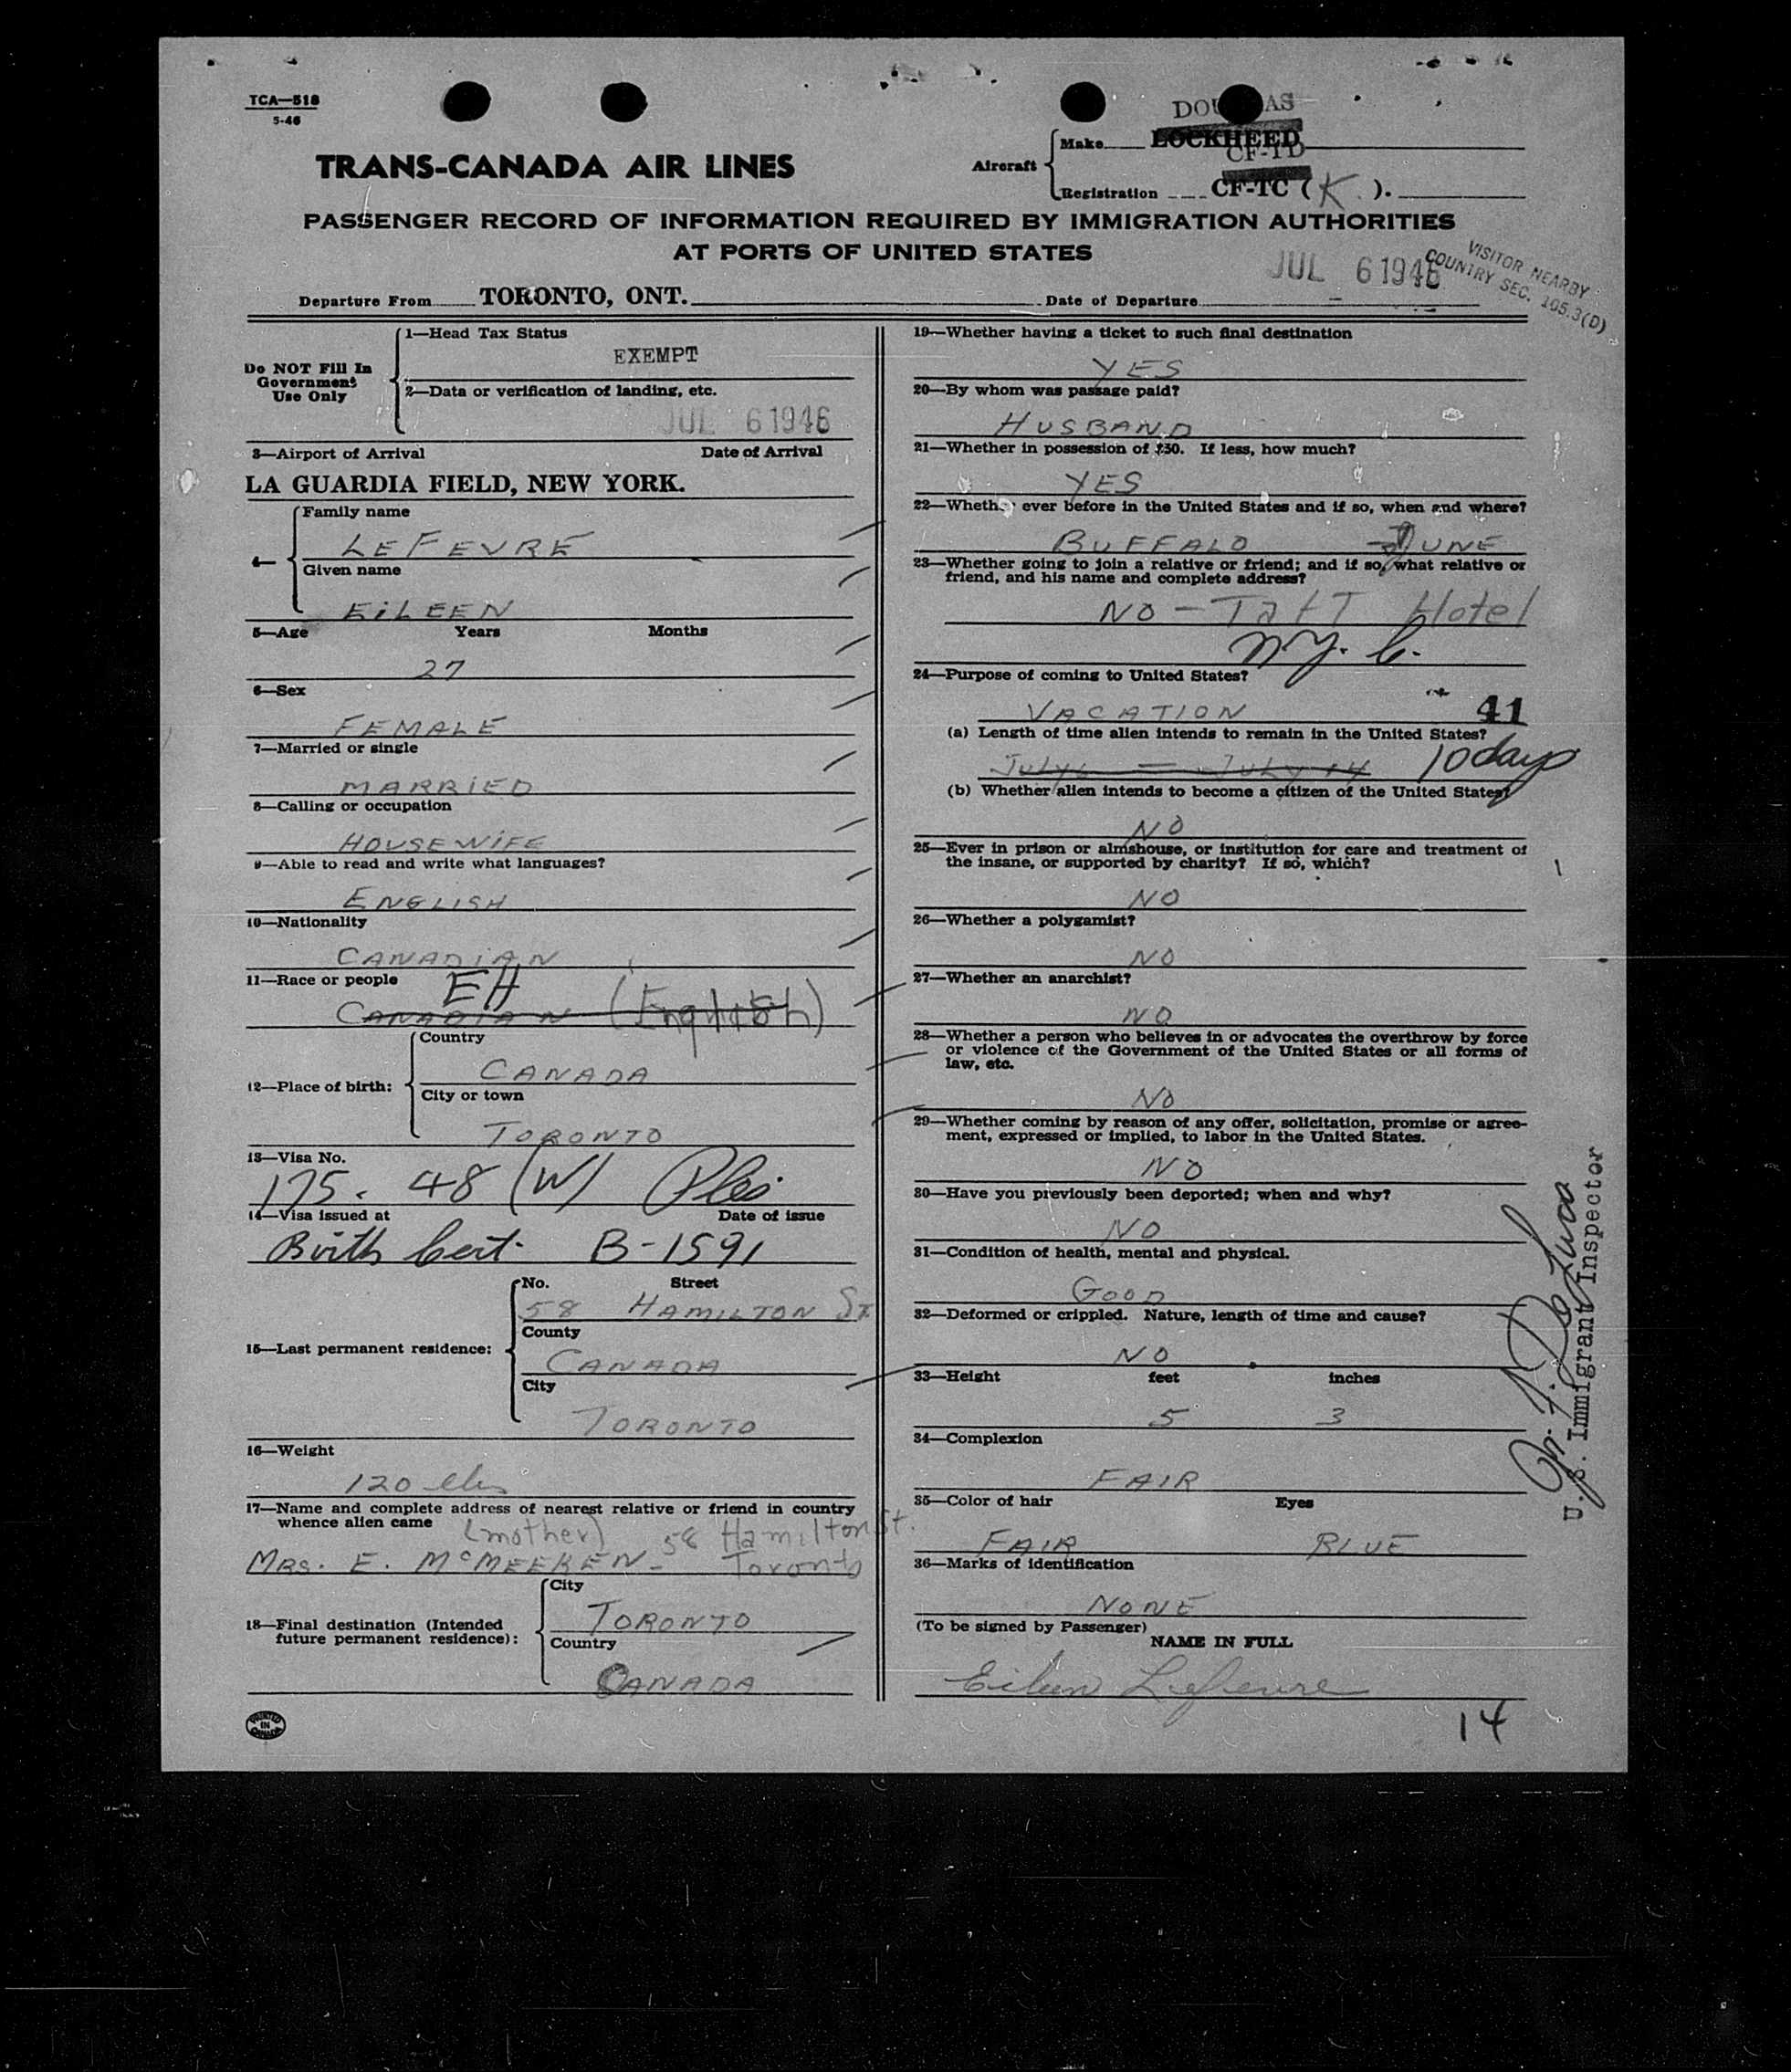 TCA—518
5-46
DOUGLAS
Make LOCKHEED
TRANS-CANADA AIR LINES
Aircraft
CF-TD
Registration CF-TC (K).
PASSENGER RECORD OF INFORMATION REQUIRED BY IMMIGRATION AUTHORITIES
AT PORTS OF UNITED STATES
VISITOR NEARBY
COUNTRY SEC. 105.3(D)
Departure From TORONTO, ONT. Date of Departure JUL 6 1946
Do NOT Fill In
Government
Use Only
1—Head Tax Status
EXEMPT
2—Data or verification of landing, etc.
JUL 6 1946
3—Airport of Arrival Date of Arrival
LA GUARDIA FIELD, NEW YORK.
4—
Family name
LEFEVRE
Given name
EILEEN
5—Age Years Months
27
6—Sex
FEMALE
7—Married or single
MARRIED
8—Calling or occupation
HOUSEWIFE
9—Able to read and write what languages?
ENGLISH
10—Nationality
CANADIAN
11—Race or people
EH
CANADIAN (English)
12—Place of birth:
Country
CANADA
City or town
TORONTO
13—Visa No.
175. 48 (W)
14—Visa issued at Date of issue
Birth Cert. B-1591
15—Last permanent residence:
No. Street
58 HAMILTON St
County
CANADA
City
TORONTO
16—Weight
120 lbs
17—Name and complete address of nearest relative or friend in country
whence alien came
(mother) 58 Hamilton St.
MRS. E. McMEEKEN - Toronto
18—Final destination (Intended
future permanent residence):
City
TORONTO
Country
CANADA
PRINTED
IN
CANADA
19—Whether having a ticket to such final destination
YES
20—By whom was passage paid?
HUSBAND
21—Whether in possession of $50. If less, how much?
YES
22—Whether ever before in the United States and if so, when and where?
BUFFALO - JUNE
23—Whether going to join a relative or friend; and if so, what relative or
friend, and his name and complete address?
NO - Taft Hotel
N.Y. C.
24—Purpose of coming to United States?
VACATION 41
(a) Length of time alien intends to remain in the United States?
July 6 — July 14 10 days
(b) Whether alien intends to become a citizen of the United States?
NO
25—Ever in prison or almshouse, or institution for care and treatment of
the insane, or supported by charity? If so, which?
NO
26—Whether a polygamist?
NO
27—Whether an anarchist?
NO
28—Whether a person who believes in or advocates the overthrow by force
or violence of the Government of the United States or all forms of
law, etc.
NO
29—Whether coming by reason of any offer, solicitation, promise or agree-
ment, expressed or implied, to labor in the United States.
NO
30—Have you previously been deported; when and why?
NO
31—Condition of health, mental and physical.
GOOD
32—Deformed or crippled. Nature, length of time and cause?
NO
33—Height feet inches
5 3
34—Complexion
FAIR
35—Color of hair Eyes
FAIR BLUE
36—Marks of identification
NONE
(To be signed by Passenger)
NAME IN FULL
Eileen Lefevre
14
U.S. Immigrant Inspector